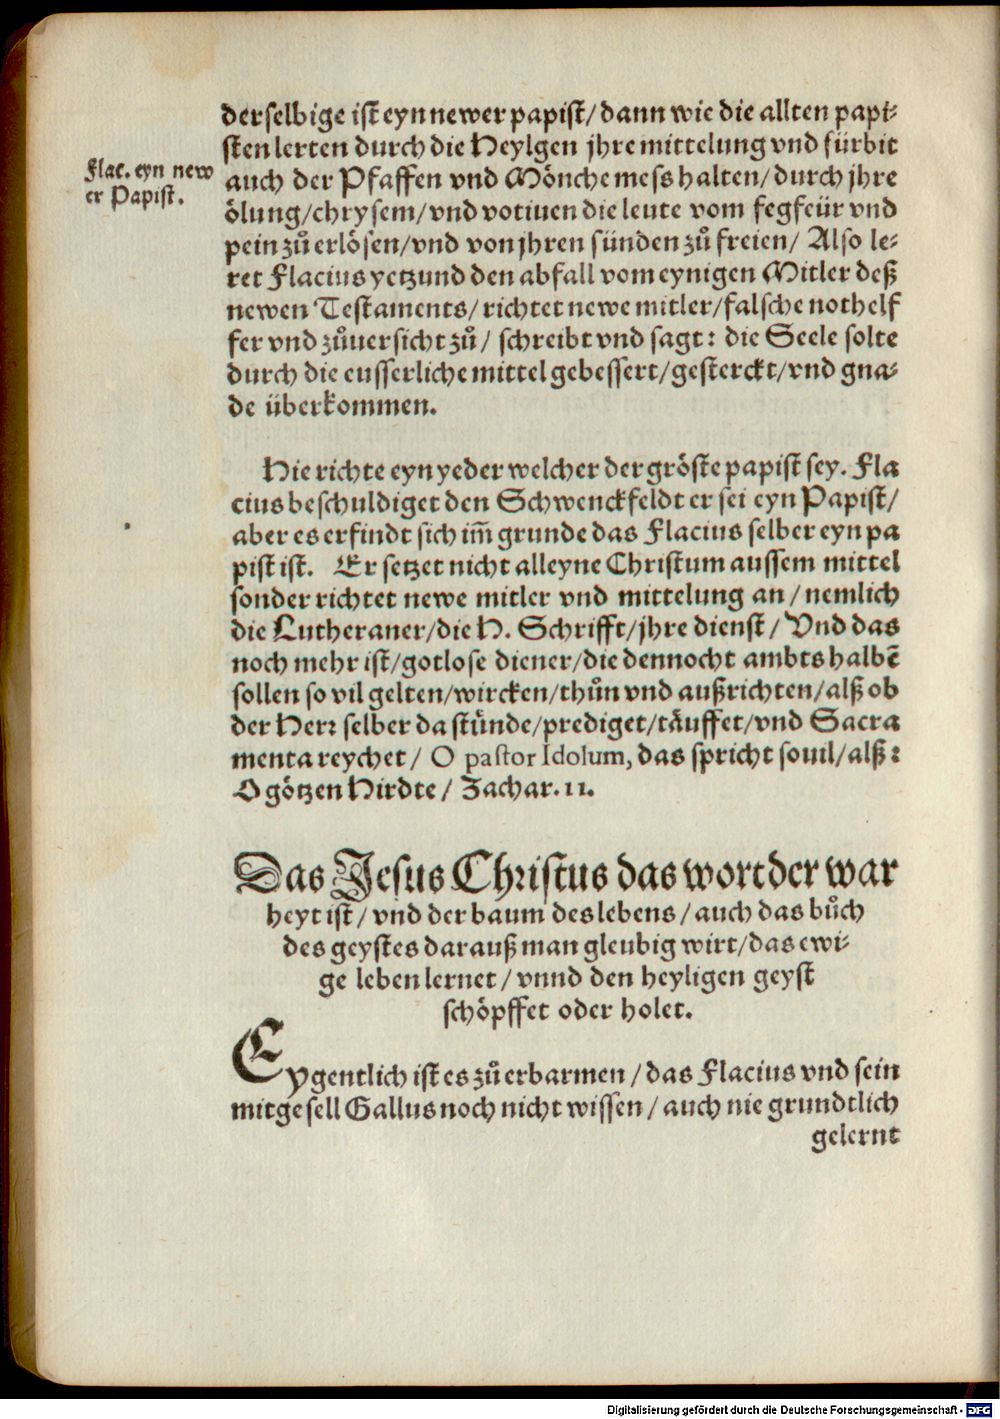 derselbige ist eyn newer papist/ dann wie die allten papi⸗
sten lerten durch die Heylgen jhre mittelung vnd fürbit
Flac. eyn new
er Papist.
auch der Pfaffen vnd Mönche mess halten/ durch jhre
ölung/ chrysem/ vnd votiuen die leute vom fegfeür vnd
pein zů erlösen/ vnd von jhren sünden zů freien/ Also le⸗
ret Flacius yetzund den abfall vom eynigen Mitler deß
newen Testaments/ richtet newe mitler/ falsche nothelf
fer vnd zůuersicht zů/ schreibt vnd sagt: die Seele solte
durch die eusserliche mittel gebessert/ gesterckt/ vnd gna⸗
de überkommen.
Hie richte eyn yeder welcher der gröste papist sey. Fla
cius beschuldiget den Schwenckfeldt er sei eyn Papist/
aber es erfindt sich im̄ grunde das Flacius selber eyn pa
pist ist. Er setzet nicht alleyne Christum aussem mittel
sonder richtet newe mitler vnd mittelung an/ nemlich
die Lutheraner/ die H. Schrifft/ jhre dienst/ Vnd das
noch mehr ist/ gotlose diener/ die dennocht ambts halbē
sollen so vil gelten/ wircken/ thůn vnd außrichten/ alß ob
der Herr selber da stünde/ prediget/ täuffet/ vnd Sacra
menta reychet/ O pastor Idolum, das spricht souil/ alß:
O götzen Hirdte/ Zachar. 11.
Das Jesus Christus das wort der war
heyt ist/ vnd der baum des lebens/ auch das bůch
des geystes darauß man gleubig wirt/ das ewi⸗
ge leben lernet/ vnnd den heyligen geyst
schöpffet oder holet.
Eygentlich ist es zů erbarmen/ das Flacius vnd sein
mitgesell Gallus noch nicht wissen/ auch nie grundtlich
gelernt
Digitalisierung gefördert durch die Deutsche Forschungsgemeinschaft - DFG